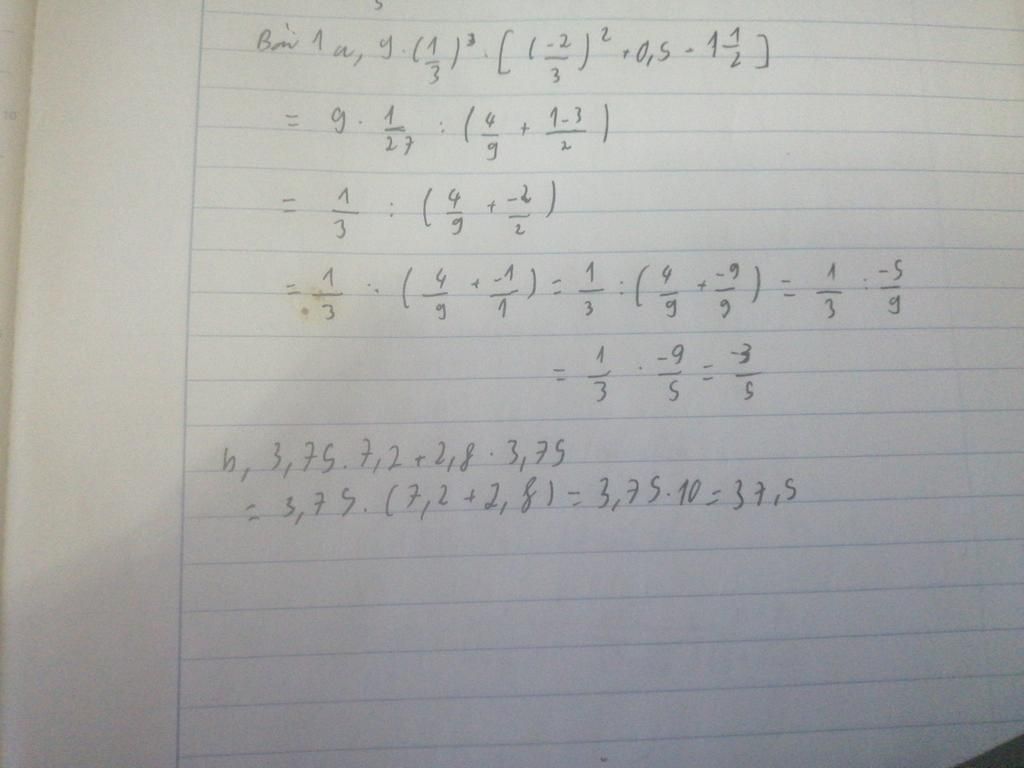 5
Bài 1 a, 9 · (1/3)³ : [(-2/3)² + 0,5 - 1 1/2]
= 9 · 1/27 : (4/9 + 1-3/2)
= 1/3 : (4/9 + -2/2)
= 1/3 : (4/9 + -1/1) = 1/3 : (4/9 + -9/9) = 1/3 : -5/9
= 1/3 · -9/5 = -3/5
b, 3,75 . 7,2 + 2,8 . 3,75
= 3,75 . (7,2 + 2,8) = 3,75 . 10 = 37,5